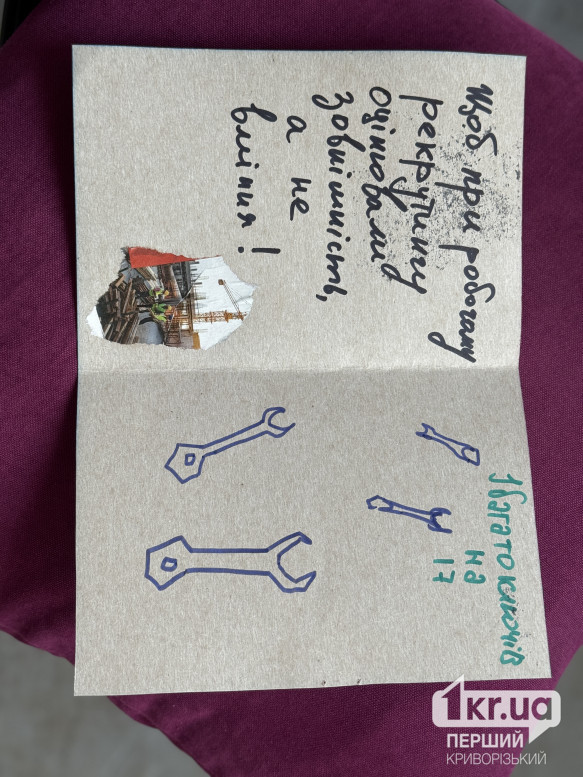 Щоб при робочому
рекрутингу
оцінювали
зовнішність,
а не
вміння!
багато ключів
на
17
1kr.ua
ПЕРШИЙ
КРИВОРІЗЬКИЙ